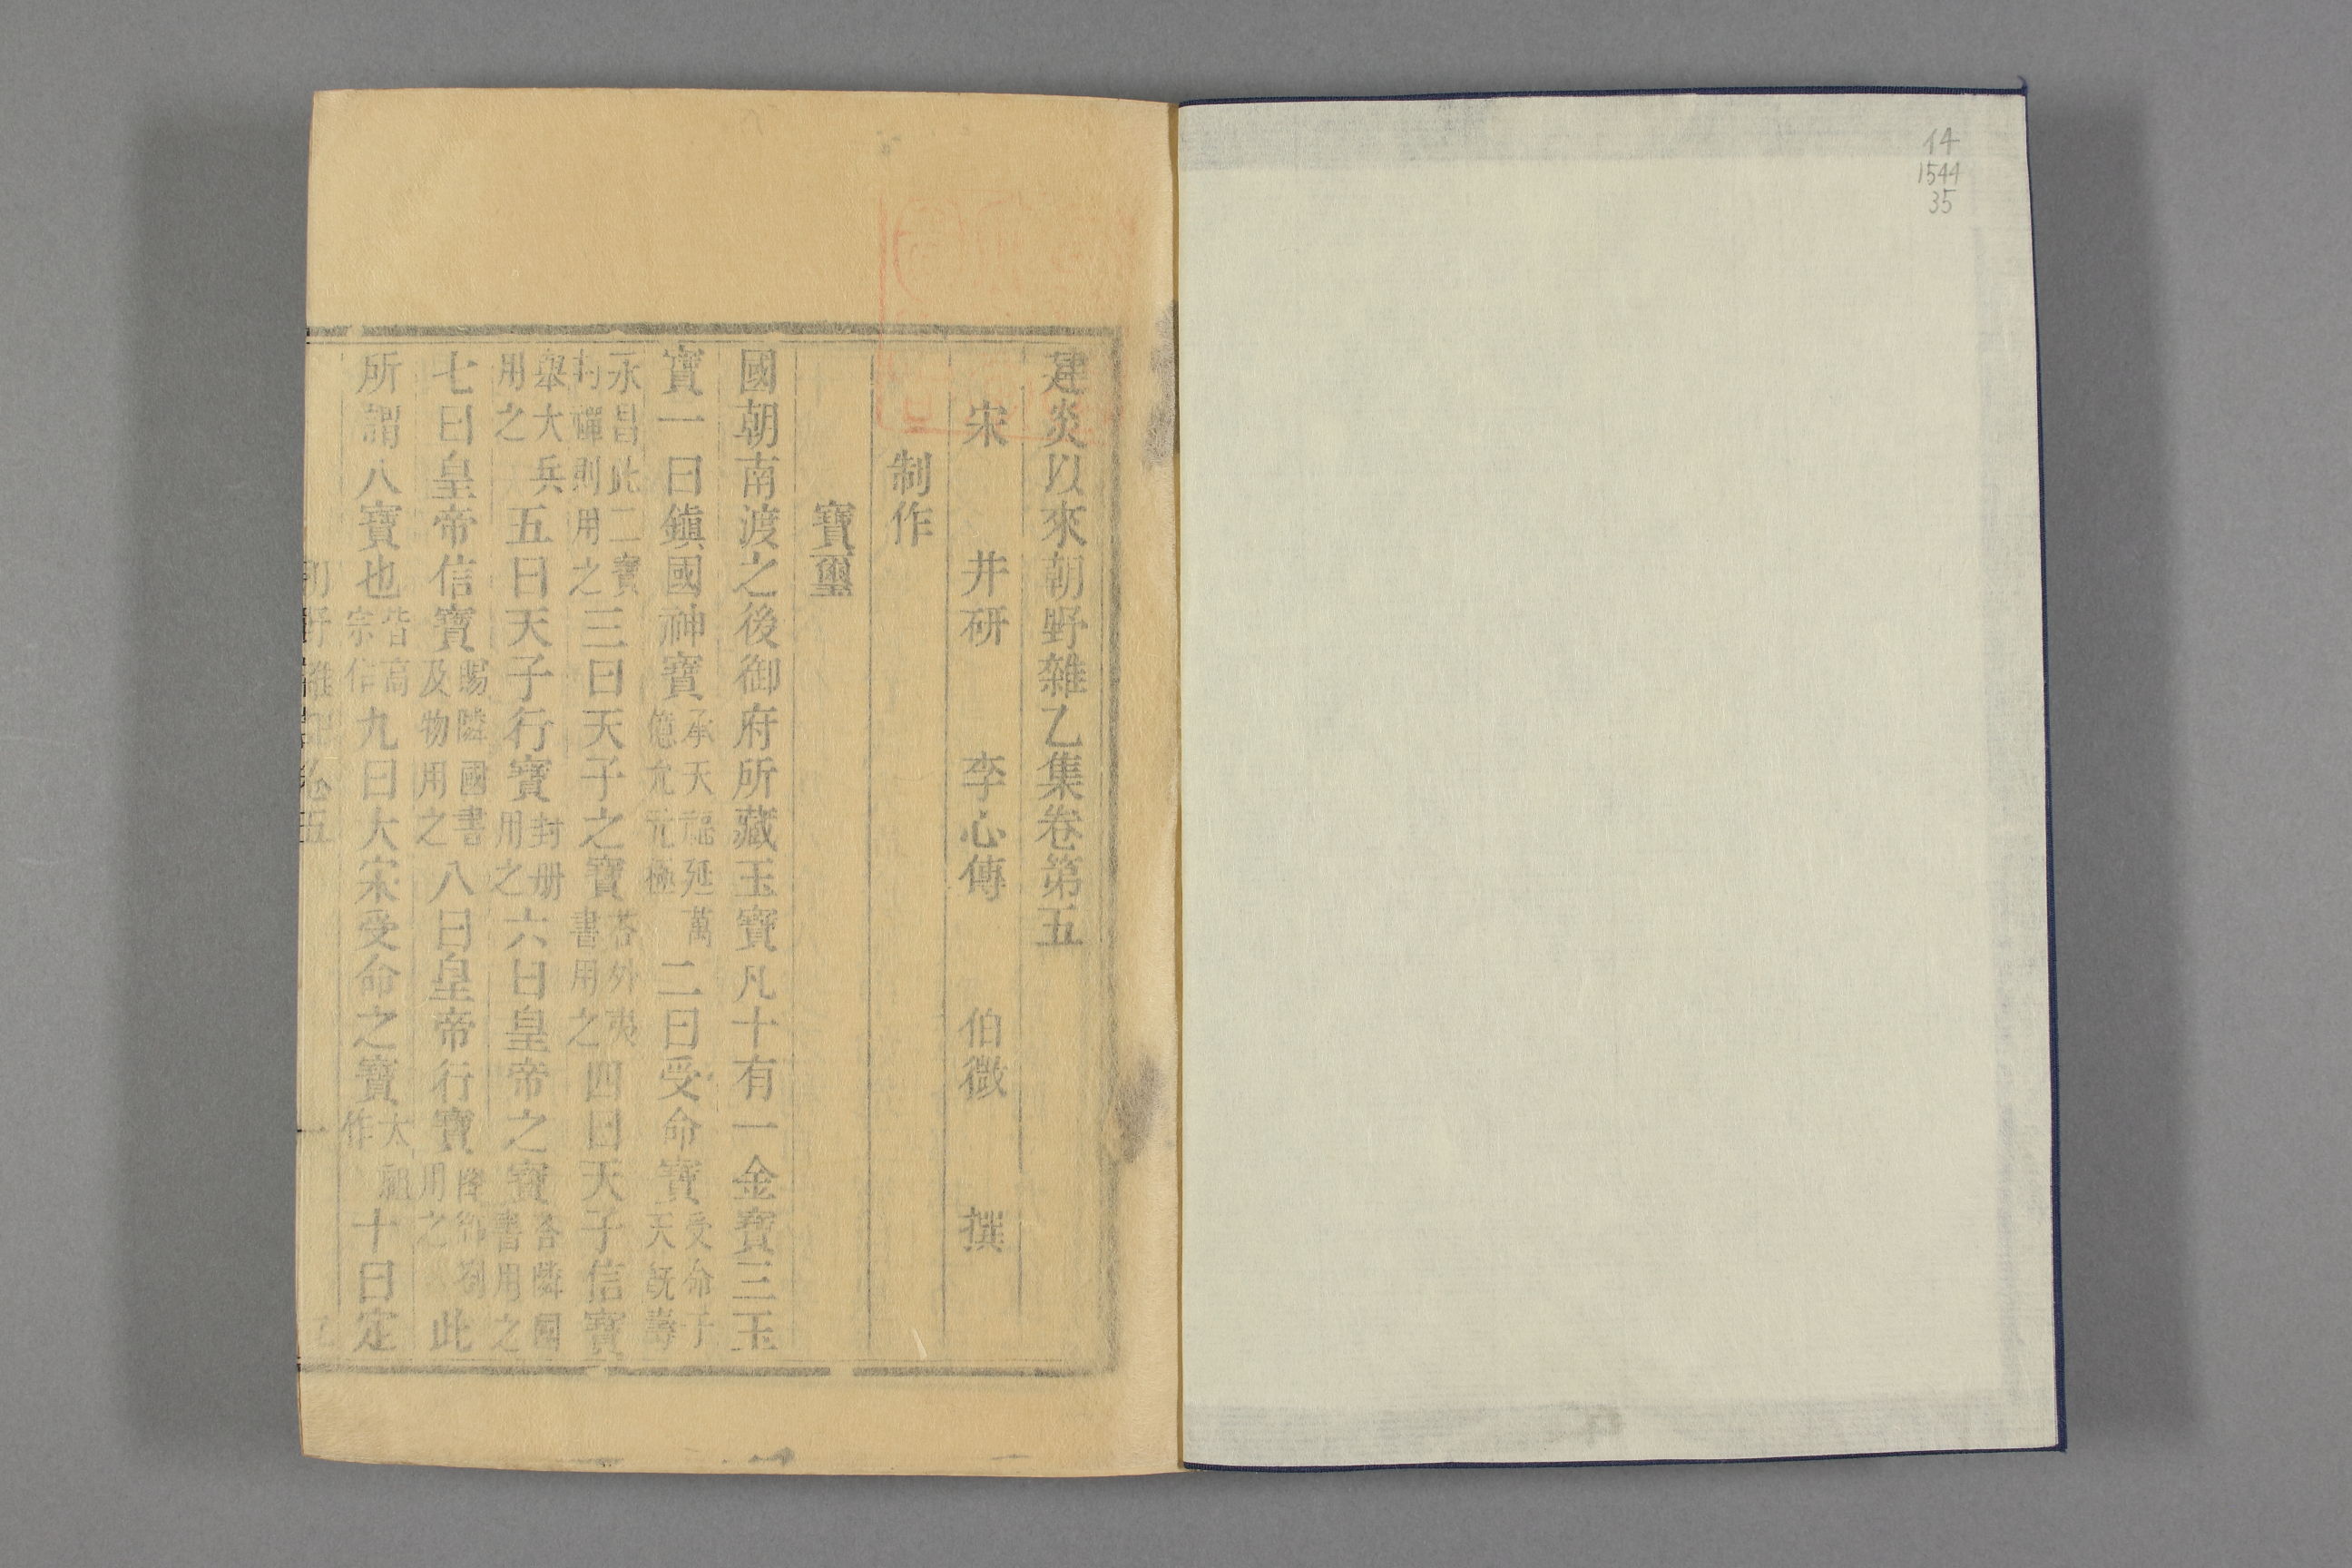 14
1544
35
建炎以來朝野雜乙集卷第五
宋 井研 李心傳 伯微 撰
制作
寶璽
國朝南渡之後御府所藏玉寶凡十有一金寶三玉
寶一曰鎮國神寶承天福延萬億允元極二曰受命寶受命于天旣壽
永昌此二寶封禪則用之三曰天子之寶荅外夷書用之四曰天子信寶
舉大兵用之五曰天子行寶封册用之六曰皇帝之寶荅隣國書用之
七曰皇帝信寶賜隣國書及物用之八曰皇帝行寶降御劄用之此
所謂八寶也皆高宗作九曰大宋受命之寶太祖作十曰定
卷五
一